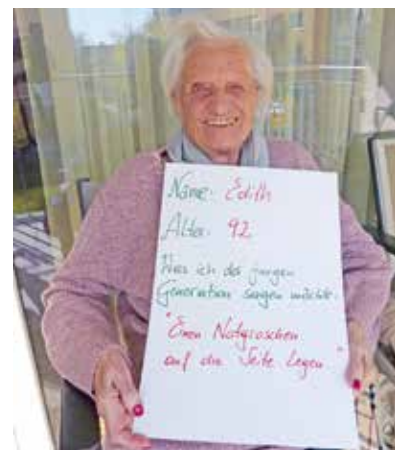 Name: Edith
Alter: 92
Was ich der jungen
Generation sagen möchte:
"Einen Notgroschen
auf die Seite legen"